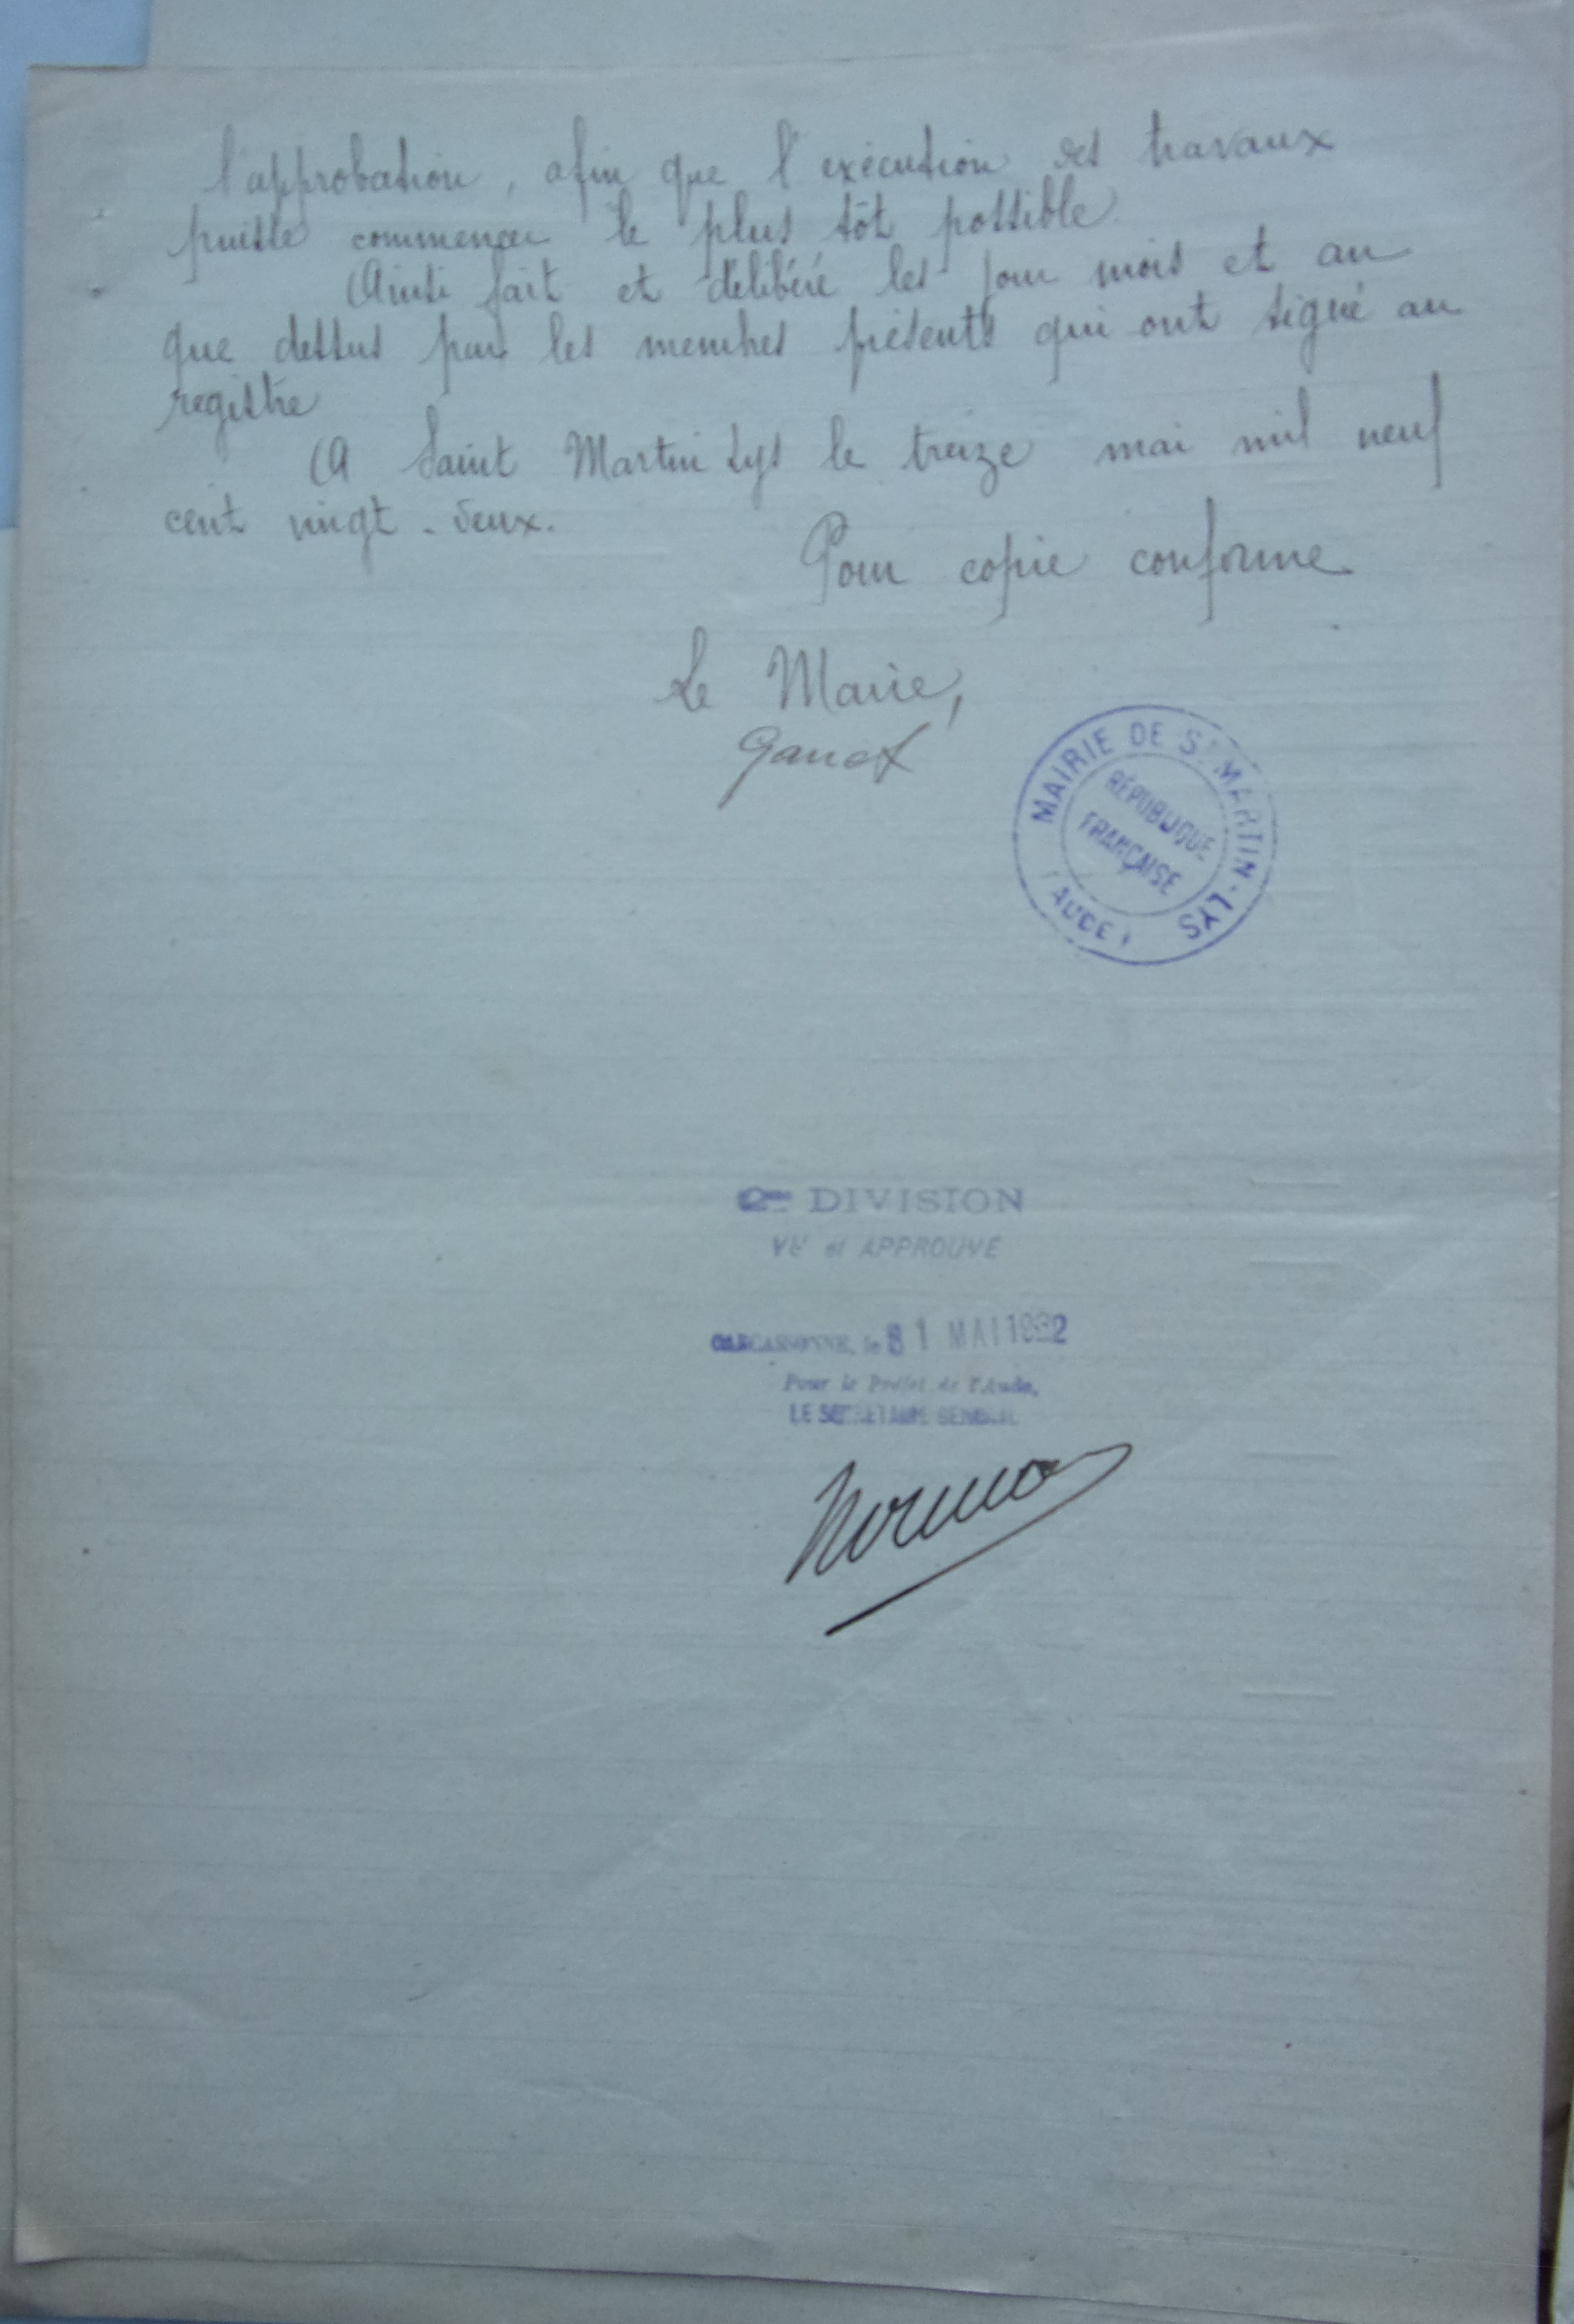 l'approbation, afin que l'exécution des travaux
puisse commencer le plus tôt possible.
Ainsi fait et délibéré les jour mois et an
que dessus par les membres présents qui ont signé au
registre
A Saint Martin Lys le treize mai mil neuf
cent vingt-deux.
Pour copie conforme
Le Maire,
MAIRIE DE St MARTIN-LYS
(AUDE)
RÉPUBLIQUE
FRANÇAISE
2me DIVISION
VU et APPROUVÉ
CARCASSONNE, le 31 MAI 1922
Pour le Préfet de l'Aude,
LE SECRÉTAIRE GÉNÉRAL